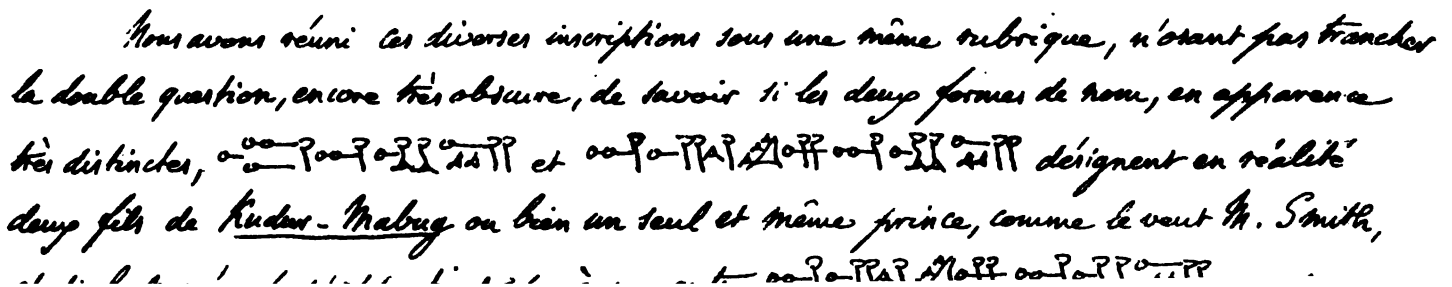 Nous avons réuni ces diverses inscriptions sous une même rubrique, n'osant pas trancher
la double question, encore très obscure, de savoir si les deux formes de nom, en apparence
très distinctes, et désignent en réalité
deux fils de Kudur-Mabug ou bien un seul et même prince, comme le veut M. Smith,